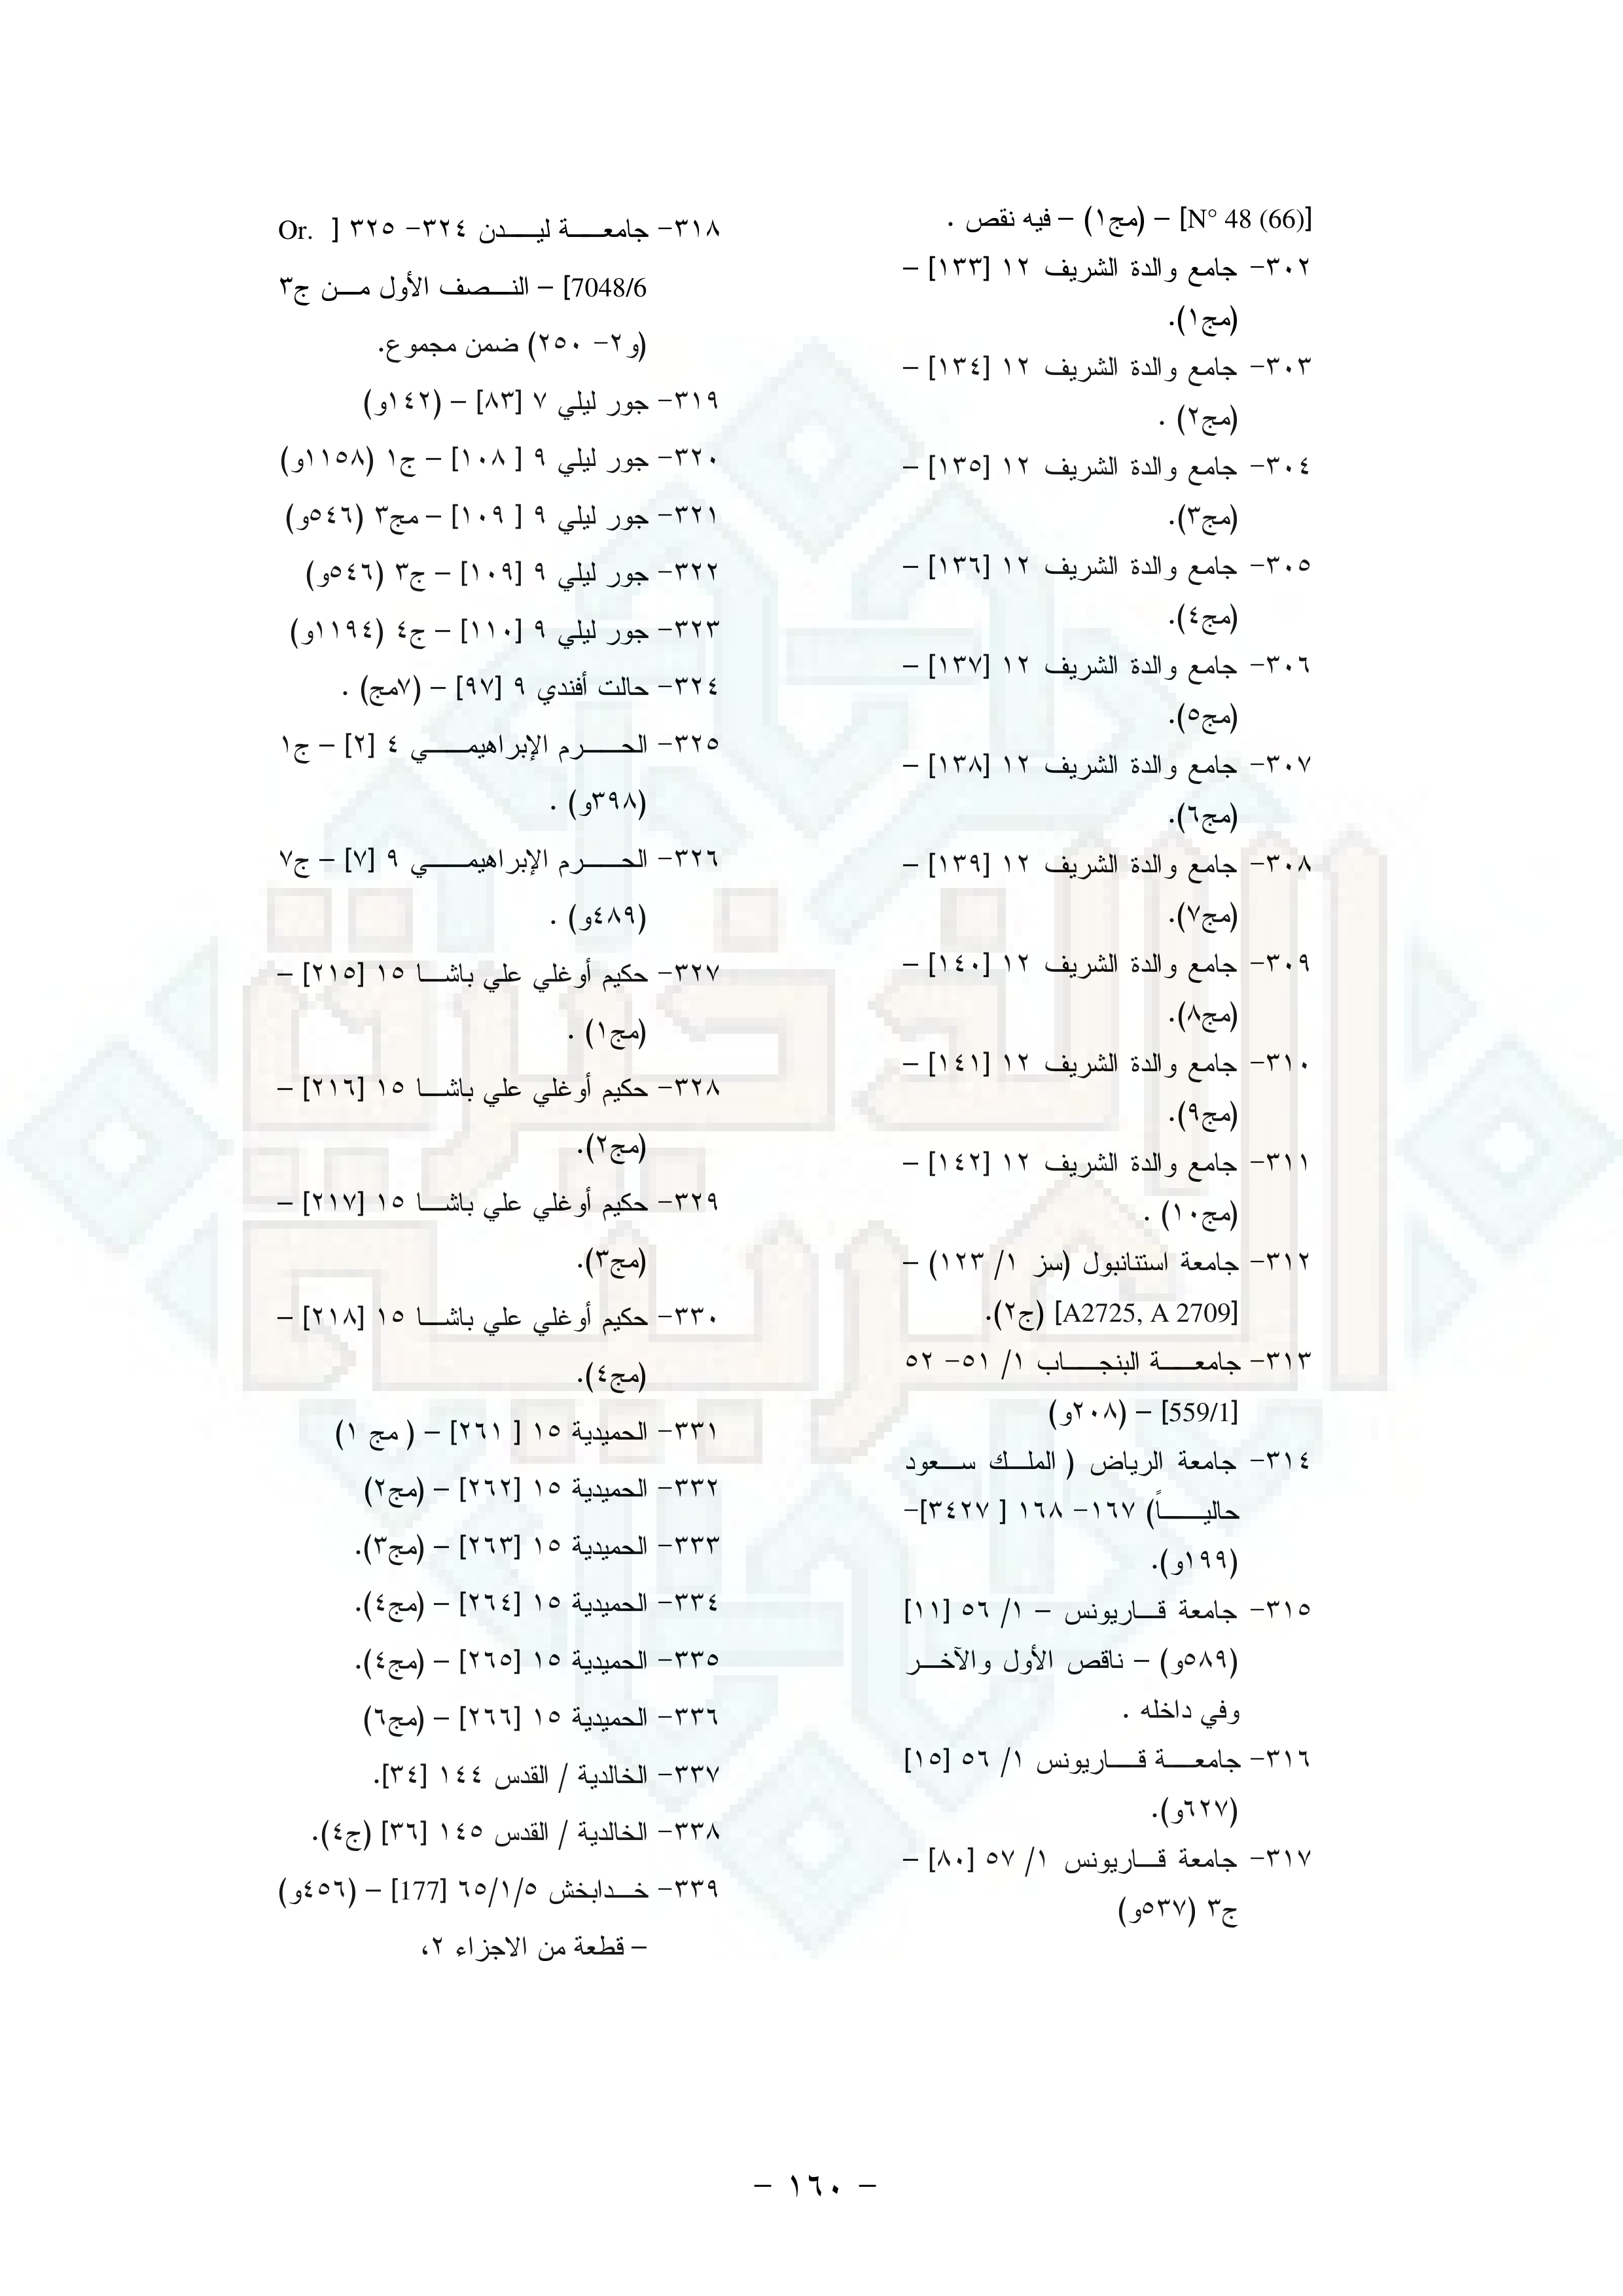 [N° 48 (66)] – (مج١) – فيه نقص .
٣٠٢- جامع والدة الشريف ١٢ [١٣٣] –
(مج١).
٣٠٣- جامع والدة الشريف ١٢ [١٣٤] –
(مج٢) .
٣٠٤- جامع والدة الشريف ١٢ [١٣٥] –
(مج٣).
٣٠٥- جامع والدة الشريف ١٢ [١٣٦] –
(مج٤).
٣٠٦- جامع والدة الشريف ١٢ [١٣٧] –
(مج٥).
٣٠٧- جامع والدة الشريف ١٢ [١٣٨] –
(مج٦).
٣٠٨- جامع والدة الشريف ١٢ [١٣٩] –
(مج٧).
٣٠٩- جامع والدة الشريف ١٢ [١٤٠] –
(مج٨).
٣١٠- جامع والدة الشريف ١٢ [١٤١] –
(مج٩).
٣١١- جامع والدة الشريف ١٢ [١٤٢] –
(مج١٠) .
٣١٢- جامعة استتانبول (سز ١/ ١٢٣) –
[A2725, A 2709] (ج٢).
٣١٣- جامعة البنجاب ١/ ٥١- ٥٢
[559/1] – (٢٠٨و)
٣١٤- جامعة الرياض ( الملك سعود
حالياً) ١٦٧- ١٦٨ [ ٣٤٢٧]-
(١٩٩و).
٣١٥- جامعة قاريونس – ١/ ٥٦ [١١]
(٥٨٩و) – ناقص الأول والآخر
وفي داخله .
٣١٦- جامعة قاريونس ١/ ٥٦ [١٥]
(٦٢٧و).
٣١٧- جامعة قاريونس ١/ ٥٧ [٨٠] –
ج٣ (٥٣٧و)
٣١٨- جامعة ليدن ٣٢٤- ٣٢٥ [ Or.
7048/6] – النصف الأول من ج٣
(و٢- ٢٥٠) ضمن مجموع.
٣١٩- جور ليلي ٧ [٨٣] – (١٤٢و)
٣٢٠- جور ليلي ٩ [ ١٠٨] – ج١ (١١٥٨و)
٣٢١- جور ليلي ٩ [ ١٠٩] – مج٣ (٥٤٦و)
٣٢٢- جور ليلي ٩ [١٠٩] – ج٣ (٥٤٦و)
٣٢٣- جور ليلي ٩ [١١٠] – ج٤ (١١٩٤و)
٣٢٤- حالت أفندي ٩ [٩٧] – (٧مج) .
٣٢٥- الحرم الإبراهيمي ٤ [٢] – ج١
(٣٩٨و) .
٣٢٦- الحرم الإبراهيمي ٩ [٧] – ج٧
(٤٨٩و) .
٣٢٧- حكيم أوغلي علي باشا ١٥ [٢١٥] –
(مج١) .
٣٢٨- حكيم أوغلي علي باشا ١٥ [٢١٦] –
(مج٢).
٣٢٩- حكيم أوغلي علي باشا ١٥ [٢١٧] –
(مج٣).
٣٣٠- حكيم أوغلي علي باشا ١٥ [٢١٨] –
(مج٤).
٣٣١- الحميدية ١٥ [ ٢٦١] – ( مج ١)
٣٣٢- الحميدية ١٥ [٢٦٢] – (مج٢)
٣٣٣- الحميدية ١٥ [٢٦٣] – (مج٣).
٣٣٤- الحميدية ١٥ [٢٦٤] – (مج٤).
٣٣٥- الحميدية ١٥ [٢٦٥] – (مج٤).
٣٣٦- الحميدية ١٥ [٢٦٦] – (مج٦)
٣٣٧- الخالدية / القدس ١٤٤ [٣٤].
٣٣٨- الخالدية / القدس ١٤٥ [٣٦] (ج٤).
٣٣٩- خدابخش ٦٥/١/٥ [177] – (٤٥٦و)
– قطعة من الاجزاء ٢،
– ١٦٠ –
الذخيرة
العربية